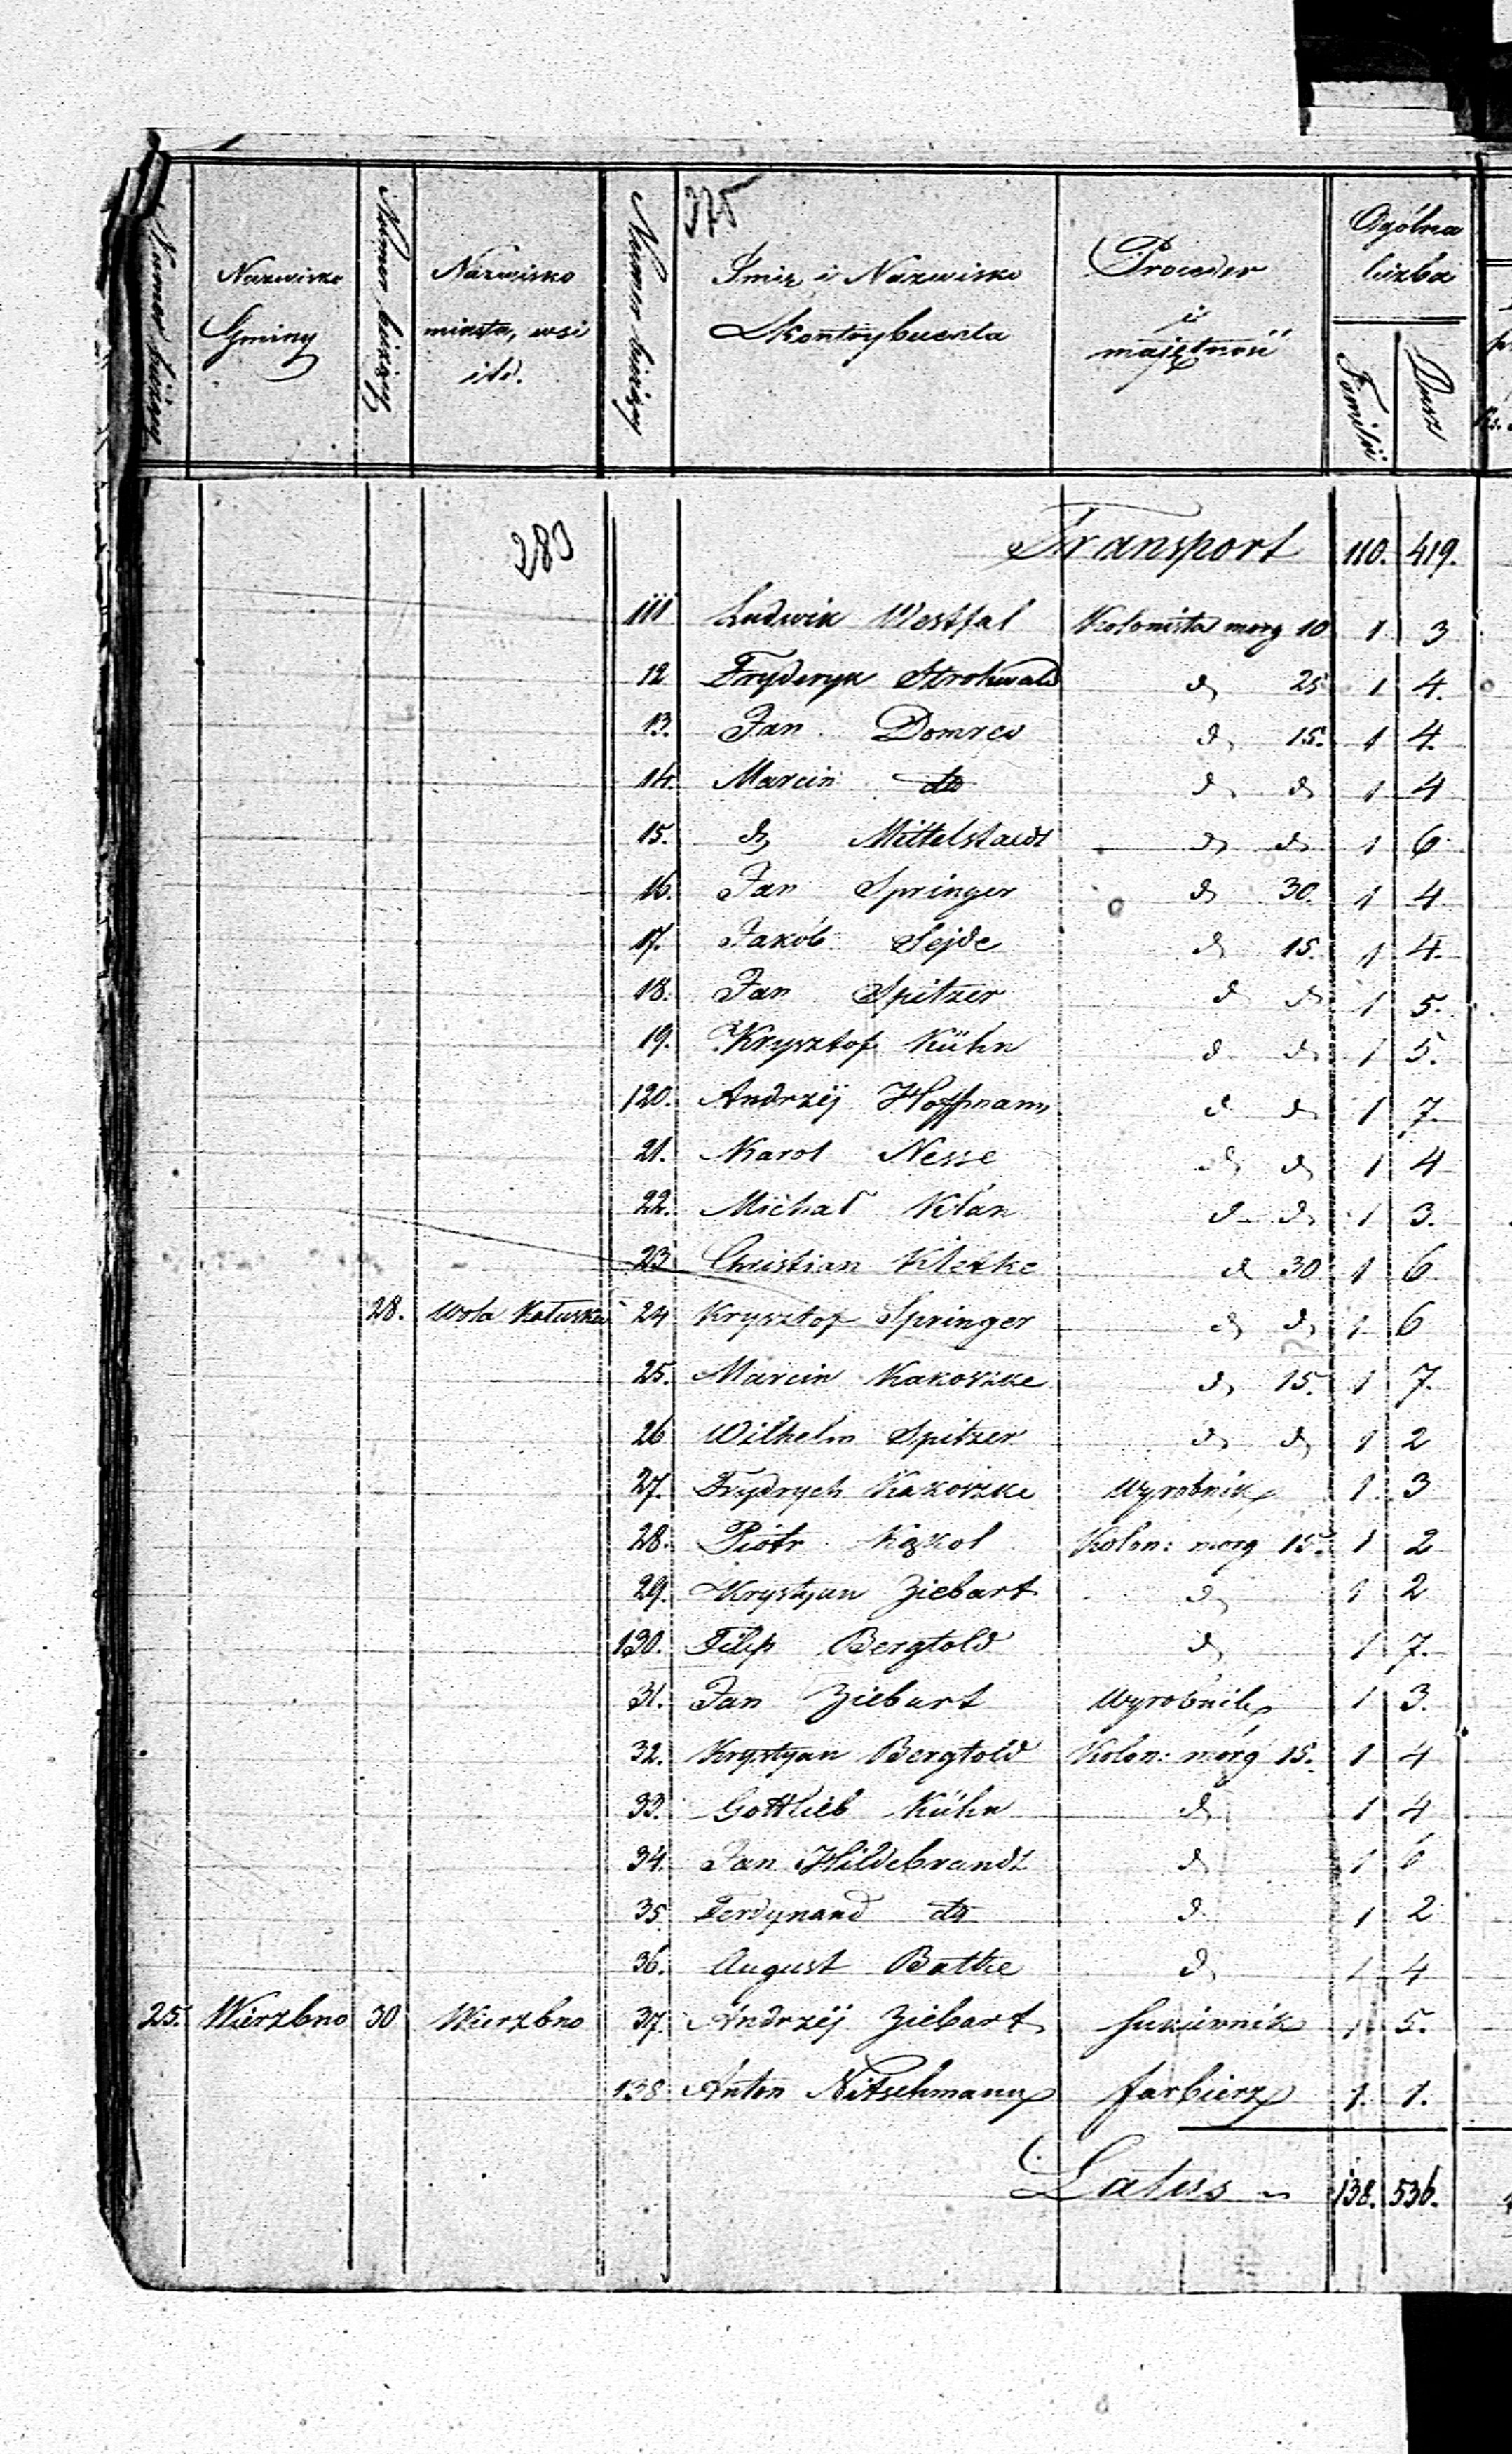 375
Numer bieżący
Nazwisko Gminy
Numer bieżący
Nazwisko miasta, wsi itd.
Numer bieżący
Imie i Nazwisko Skontrybuenta
Proceder i majętność
Ogólna liczba
Familii
Dusz
283
Transport 110. 419.
111 Ludwik Westfal Kolonista morg 10 1 3
12 Fryderyk Strohwald d 25 1 4.
13. Jan Domres d 15. 1 4.
14. Marcin dto d d 1 4
15. d Mittelstaedt d d 1 6
16. Jan Springer d 30. 1 4
17. Jakób Sejde d 15. 1 4.
18. Jan Spitzer d d 1 5.
19. Krysztof Kühn d d 1 5.
120. Andrzéj Hoffmann d d 1 7.
21. Karol Nesse d d 1 4
22. Michał Klan d d 1 3.
23 Christian Kletke d 30 1 6
28. Wola Kałuska 24 Krysztof Springer d d 1 6
25. Marcin Kakoszke d 15. 1 7.
26 Wilhelm Spitzer d d 1 2
27. Frydrych Kakoszke Wyrobnik 1 3
28. Piotr Kąkol Kolon: morg 15. 1 2
29. Krystyan Ziebart d 1 2
130. Filip Bergtold d 1 7.
31. Jan Ziebart Wyrobnik 1 3.
32. Krystyan Bergtold Kolon: morg 15. 1 4
33. Gottlieb Kühn d 1 4
34. Jan Hildebrandt d 1 6
35 Ferdynand dto d 1 2
36. August Bathe d 1 4
25. Wierzbno 30 Wierzbno 37. Andrzéj Ziebart Sukiennik 1 5.
138 Anton Nitschmann farbierz 1. 1.
Latus 138. 536.